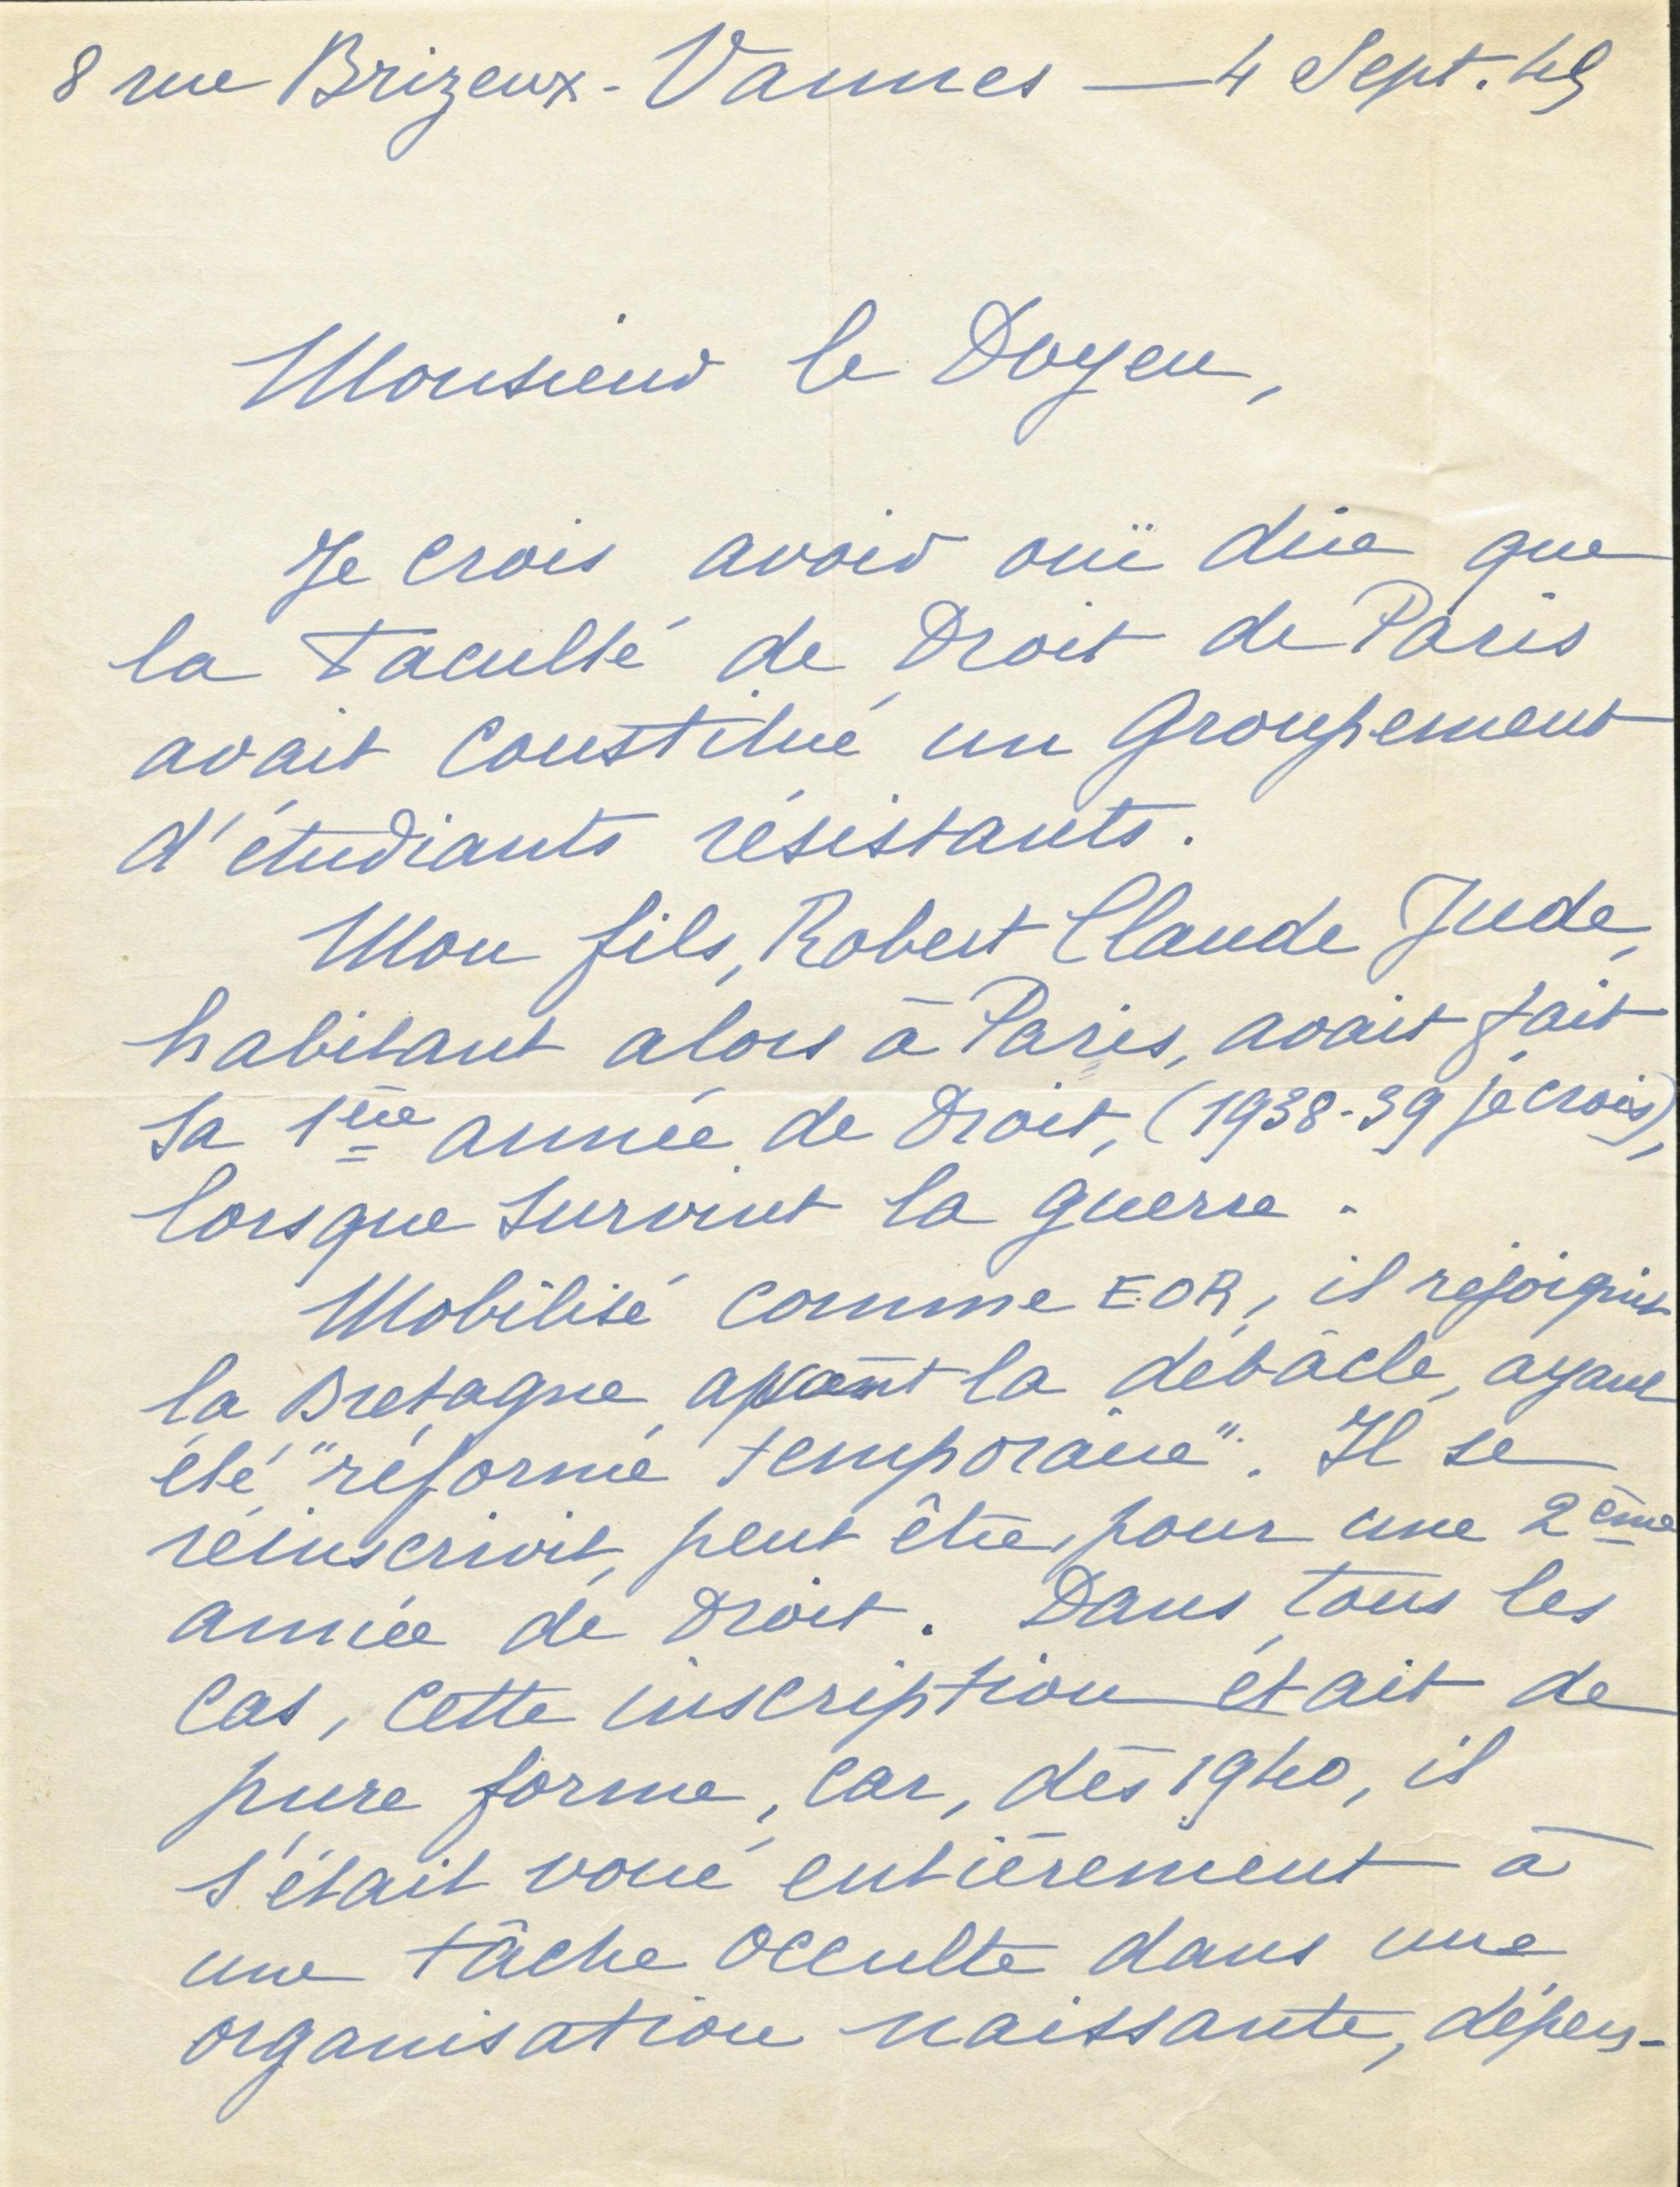 8 rue Brizeux - Vannes — 4 Sept. 45
Monsieur le Doyen,
Je crois avoir ouï dire que
la Faculté de Droit de Paris
avait constitué un Groupement
d'étudiants résistants.
Mon fils, Robert Claude Jude,
habitant alors à Paris, avait fait
sa 1ère année de Droit, (1938-39 je crois),
lorsque survint la guerre.
Mobilisé comme E.O.R, il rejoignit
la Bretagne avant la débâcle, ayant
été "réformé temporaire". Il se
réinscrivit, peut être, pour une 2ème
année de Droit. Dans tous les
cas, cette inscription était de
pure forme, car, dès 1940, il
s'était voué entièrement à
une tâche occulte dans une
organisation naissante, dépen-